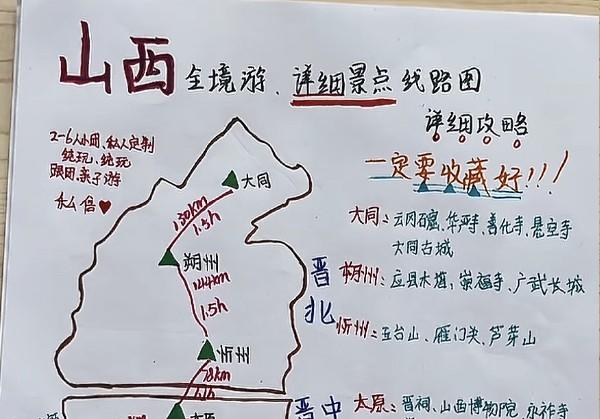 山西全境游、详细景点线路图
详细攻略
2-6人小团、私人定制
纯玩、纯玩
跟团、亲子游
私信
一定要收藏好!!!
大同
130km
1.5h
朔州
144km
1.5h
忻州
78km
1.1h
太原
晋北
大同:云冈石窟、华严寺、善化寺、悬空寺
大同古城
朔州:应县木塔、崇福寺、广武长城
忻州:五台山、雁门关、芦芽山
晋中
太原:晋祠、山西博物院、永祚寺